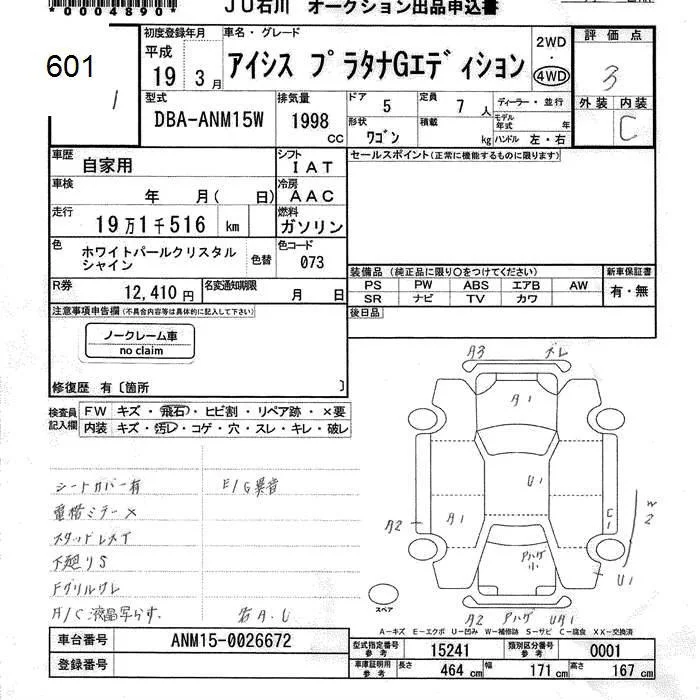 *0004890*
JU石川 オークション出品申込書
601
1
初度登録年月
平成
19 3月
車名・グレード
アイシス プラタナGエディション
2WD
・
4WD
評価点
3
外装 内装
C
型式
DBA-ANM15W
排気量
1998
cc
ドア 5
定員 7 人
ディーラー・並行
モデル年式 年
形状 ワゴン
積載 kg
ハンドル 左・右
車歴
自家用
シフト
IAT
セールスポイント(正常に機能するものに限ります)
車検
年 月( 日)
冷房
AAC
走行
19万1千516 km
燃料
ガソリン
色
ホワイトパールクリスタル
シャイン
色替
色コード
073
装備品 (純正品に限り○をつけてください)
新車保証書
PS PW ABS エアB AW
SR ナビ TV カワ
有・無
R券
12,410円
名変通知期限
月 日
後日品
注意事項申告欄 (不具合内容等は具体的に記入して下さい)
ノークレーム車
no claim
修復歴 有〔箇所 〕
検査員
記入欄
FW キズ・飛石・ヒビ割・リペア跡・×要
内装 キズ・汚レ・コゲ・穴・スレ・キレ・破レ
A3 ズレ
A1
U1
A1
A2
C1
W2
アハゲ小
U1
スペア
A2 アハゲ UA1
シートカバー有 E/G異音
電格ミラー×
スタッドレスT
下廻りS
Fグリルワレ
A/C液晶写らず. 右A.U
A-キズ E-エクボ U-凹み W-補修跡 S-サビ C-腐食 XX-交換済
車台番号 ANM15-0026672
登録番号
型式指定番号
参考
15241
類別区分番号
参考
0001
車庫証明用
参考
長さ 464 cm 幅 171 cm 高さ 167 cm